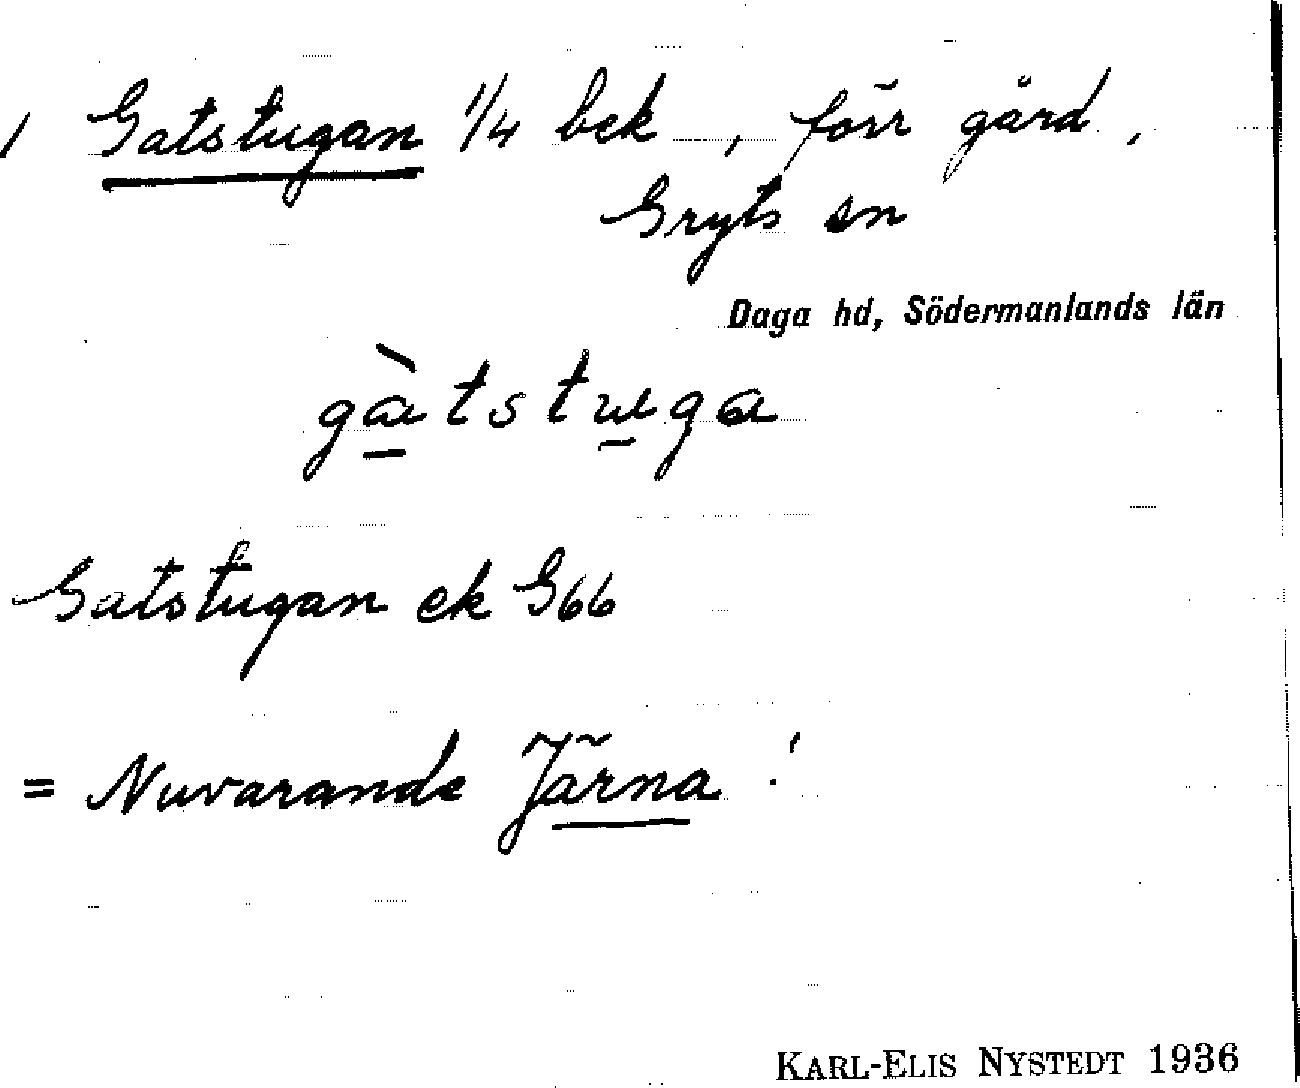 / Gatstugan 1/4 bek , förr gård,
Gryts sn
Daga hd, Södermanlands län
gàtstuga
Gatstugan ek G66
= Nuvarande Järna !
KARL-ELIS NYSTEDT 1936